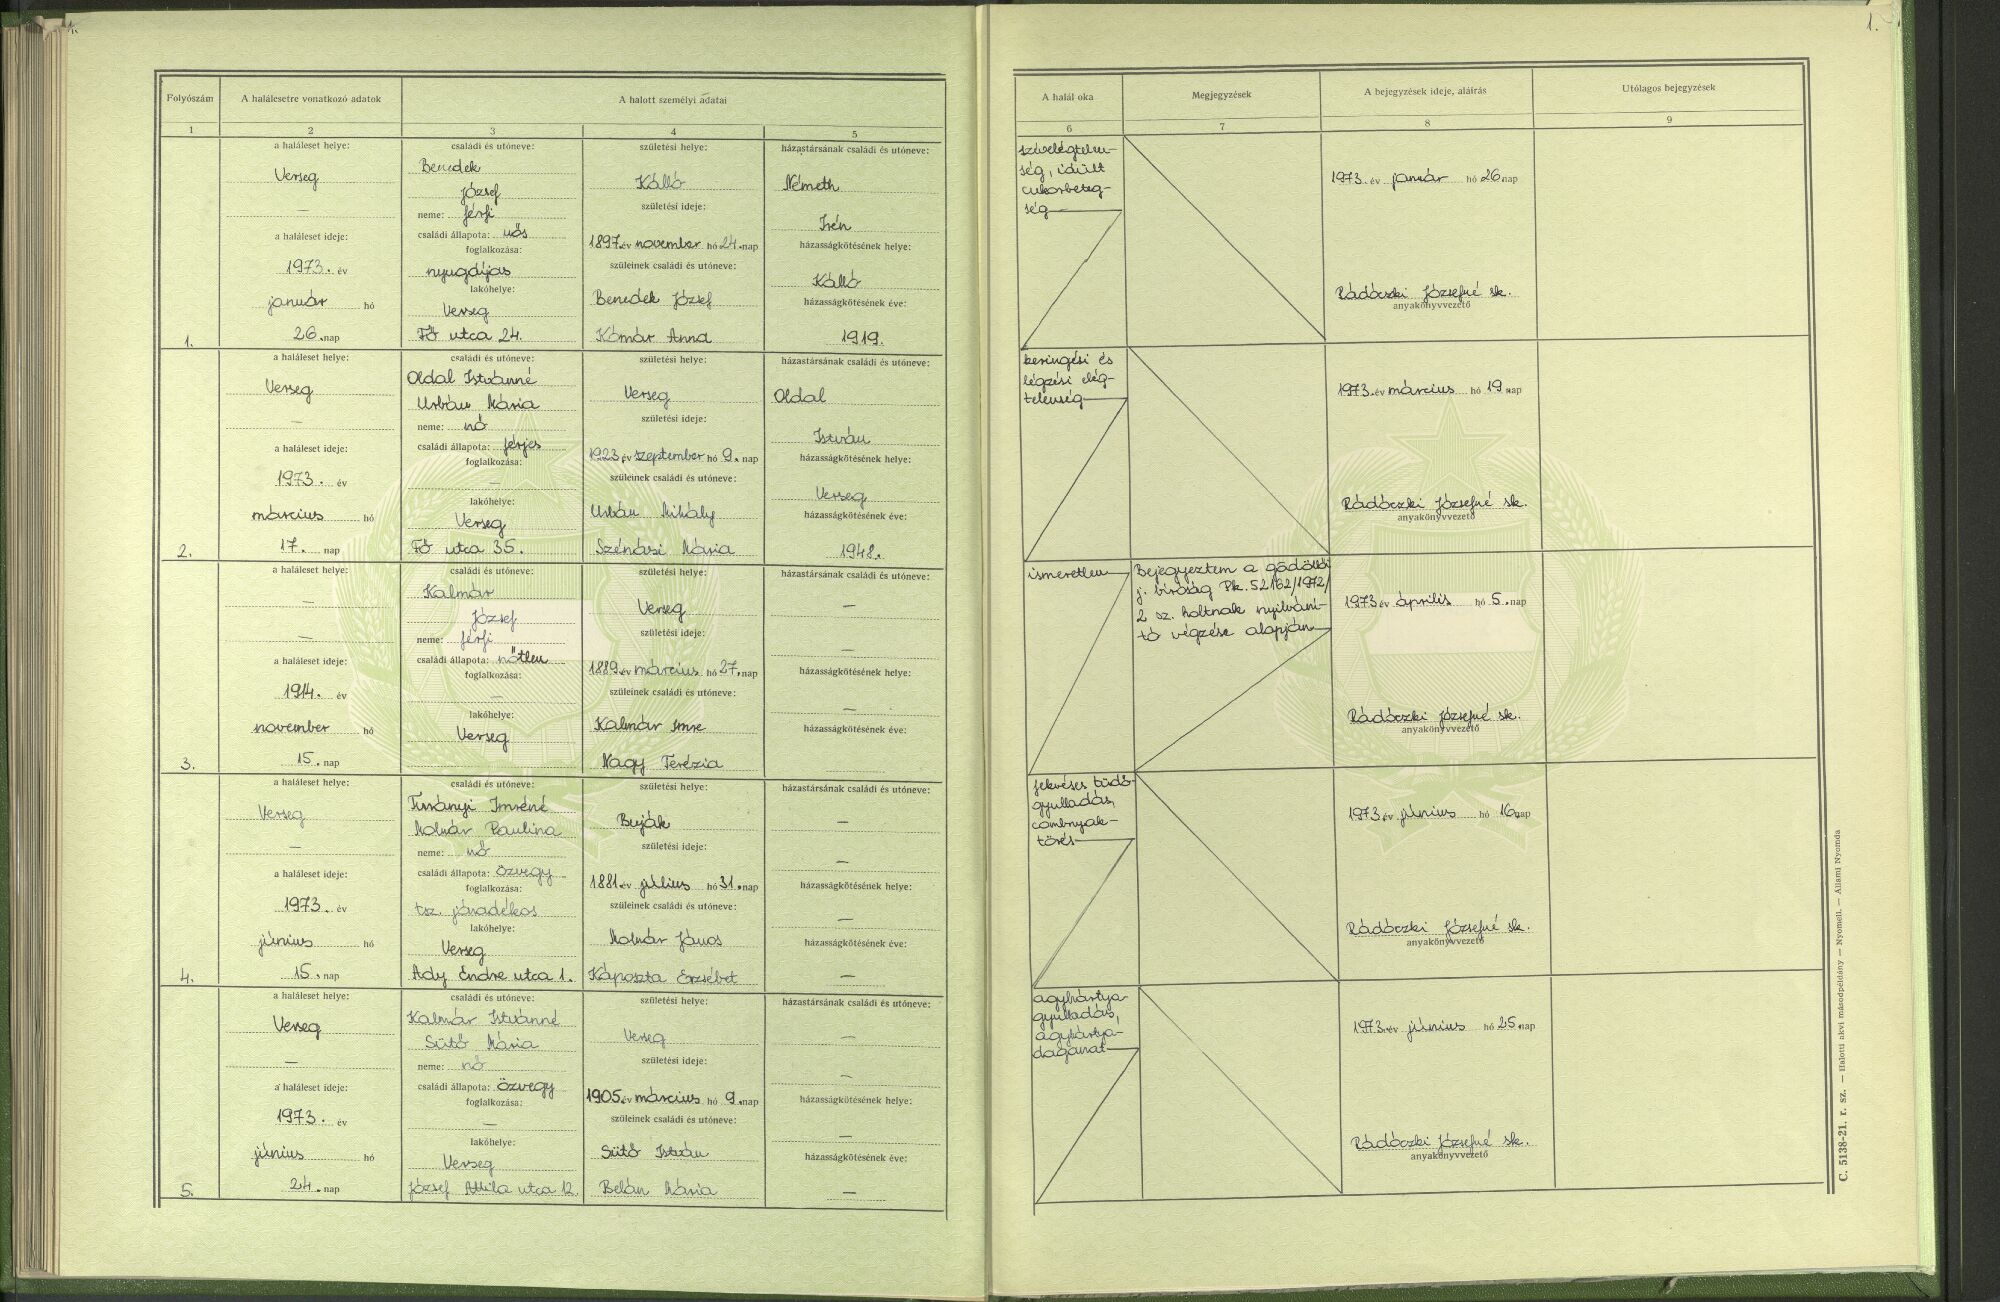 1.
1.
Folyószám
A halálesetre vonatkozó adatok
A halott személyi adatai
A halál oka
Megjegyzések
A bejegyzések ideje, aláírás
Utólagos bejegyzések
1
2
3
4
5
6
7
8
9
1.
a haláleset helye:
Verseg
—
a haláleset ideje:
1973. év
január hó
26. nap
családi és utóneve:
Benedek
József
neme: férfi
családi állapota: nős
foglalkozása:
nyugdíjas
lakóhelye:
Verseg
Fő utca 24.
születési helye:
Kálló
születési ideje:
1897. év november hó 24. nap
szüleinek családi és utóneve:
Benedek József
Komár Anna
házastársának családi és utóneve:
Németh
Irén
házasságkötésének helye:
Kálló
házasságkötésének éve:
1919.
szívelégtelen-
ség, idült
cukorbeteg-
ség
1973. év január hó 26. nap
Rádóczki Józsefné sk.
anyakönyvvezető
2.
a haláleset helye:
Verseg
—
a haláleset ideje:
1973. év
március hó
17. nap
családi és utóneve:
Oldal Istvánné
Urbán Mária
neme: nő
családi állapota: férjes
foglalkozása:
—
lakóhelye:
Verseg
Fő utca 35.
születési helye:
Verseg
születési ideje:
1923. év szeptember hó 9. nap
szüleinek családi és utóneve:
Urbán Mihály
Szénási Mária
házastársának családi és utóneve:
Oldal
István
házasságkötésének helye:
Verseg
házasságkötésének éve:
1948.
keringési és
légzési elég-
telenség
1973. év március hó 19. nap
Rádóczki Józsefné sk.
anyakönyvvezető
3.
a haláleset helye:
—
—
a haláleset ideje:
1914. év
november hó
15. nap
családi és utóneve:
Kalmár
József
neme: férfi
családi állapota: nőtlen
foglalkozása:
—
lakóhelye:
Verseg
születési helye:
Verseg
születési ideje:
1889. év március hó 27. nap
szüleinek családi és utóneve:
Kalmár Imre
Nagy Terézia
házastársának családi és utóneve:
—
—
házasságkötésének helye:
—
házasságkötésének éve:
ismeretlen
Bejegyeztem a gödöllői
j. bíróság Pk. 52162/1972/
2 sz. holtnak nyilvání-
tó végzése alapján
1973 év április hó 5. nap
Rádóczki Józsefné sk.
anyakönyvvezető
4.
a haláleset helye:
Verseg
—
a haláleset ideje:
1973. év
június hó
15. nap
családi és utóneve:
Imréné
Molnár Paulina
neme: nő
családi állapota: özvegy
foglalkozása:
tsz. járadékos
lakóhelye:
Verseg
Ady Endre utca 1.
születési helye:
Buják
születési ideje:
1881. év július hó 31. nap
szüleinek családi és utóneve:
Molnár János
Káposzta Erzsébet
házastársának családi és utóneve:
—
—
házasságkötésének helye:
—
házasságkötésének éve:
—
fekvéses tüdő-
gyulladás,
combnyak-
törés
1973 év június hó 16. nap
Rádóczki Józsefné sk.
anyakönyvvezető
5.
a haláleset helye:
Verseg
—
a haláleset ideje:
1973. év
június hó
24. nap
családi és utóneve:
Kalmár Istvánné
Sütő Mária
neme: nő
családi állapota: özvegy
foglalkozása:
—
lakóhelye:
Verseg
József Attila utca 12.
születési helye:
Verseg
születési ideje:
1905. év március hó 9. nap
szüleinek családi és utóneve:
Sütő István
Belán Mária
házastársának családi és utóneve:
—
—
házasságkötésének helye:
—
házasságkötésének éve:
—
agyhártya-
gyulladás,
agyhártya-
daganat
1973. év június hó 25. nap
Rádóczki Józsefné sk.
anyakönyvvezető
C. 5138-21. r. sz. — Halotti akvi másodpéldány — Nyomell. — Állami Nyomda